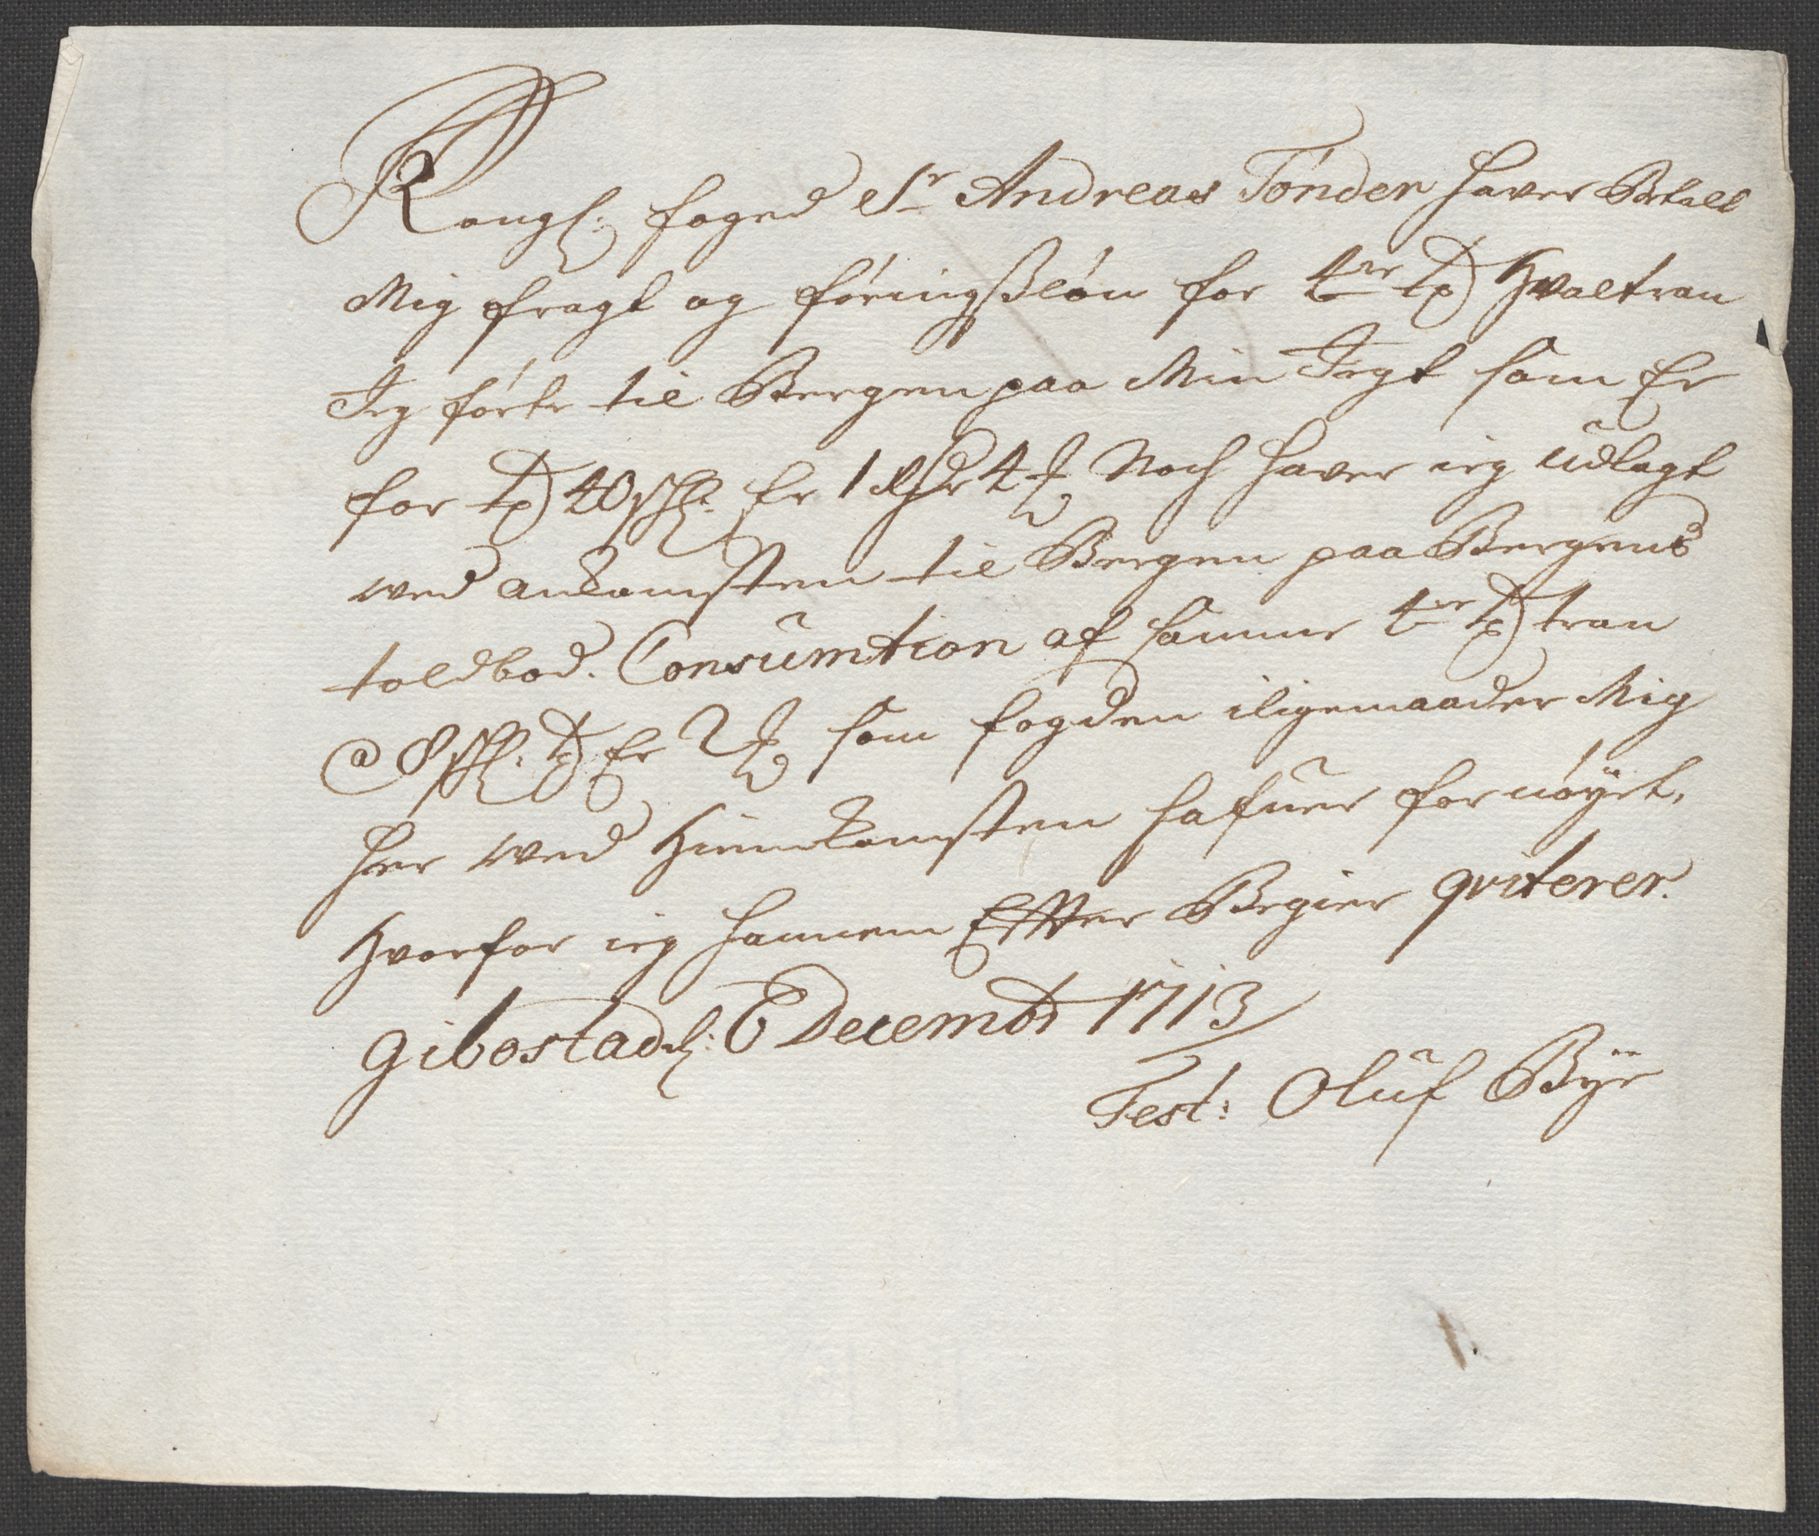 Kongl: foged Sr Andreas Tønder haver Betalt
Mig fragt og føringsløn for 4re td hvaltran
Jeg førte til Bergen paa Min Jegt som Er
for td 40 sk: Er 1 Rdr 4 Noch haver ieg udlagt
wed ankomsten til Bergen paa Bergens
toldbod. Consumtion af samme 4re td tran
a 8 sk: td Er 2 som fogden iligemaader Mig
her wed Hiemkomsten hafuer fornøyet,
Hvorfor ieg hannem Efter Begier qviterer.
Gibostad: 6 Decembr 1713
Test: Oluf Bye